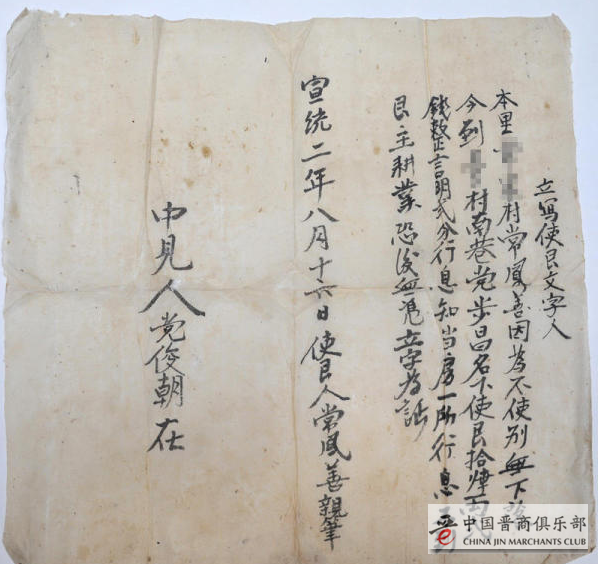 立写使艮文字人
本里村常凤善因为不使别無下
今到村南巷党步曰名下使艮拾肆
錢整言明弍分行息知当房一所行息
艮主耕業恐後無凭立字为証
宣统二年八月十六日使艮人常凤善親筆
中見人党俊朝在
中国晋商俱乐部
CHINA JIN MARCHANTS CLUB